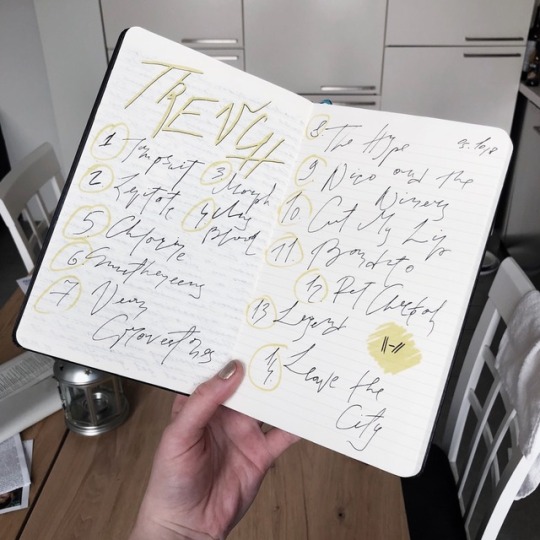 TRENCH
1 Jumpsuit
2 Levitate
3 Morph
4 My
Blood
5 Chlorine
6 Smithereens
7 Neon
Gravestones
8. The Hype
9 Nico and the
Niners
10 Cut My Lip
11 Bandito
12 Pet Cheetah
13 Legend
||-//
14 Leave the
City